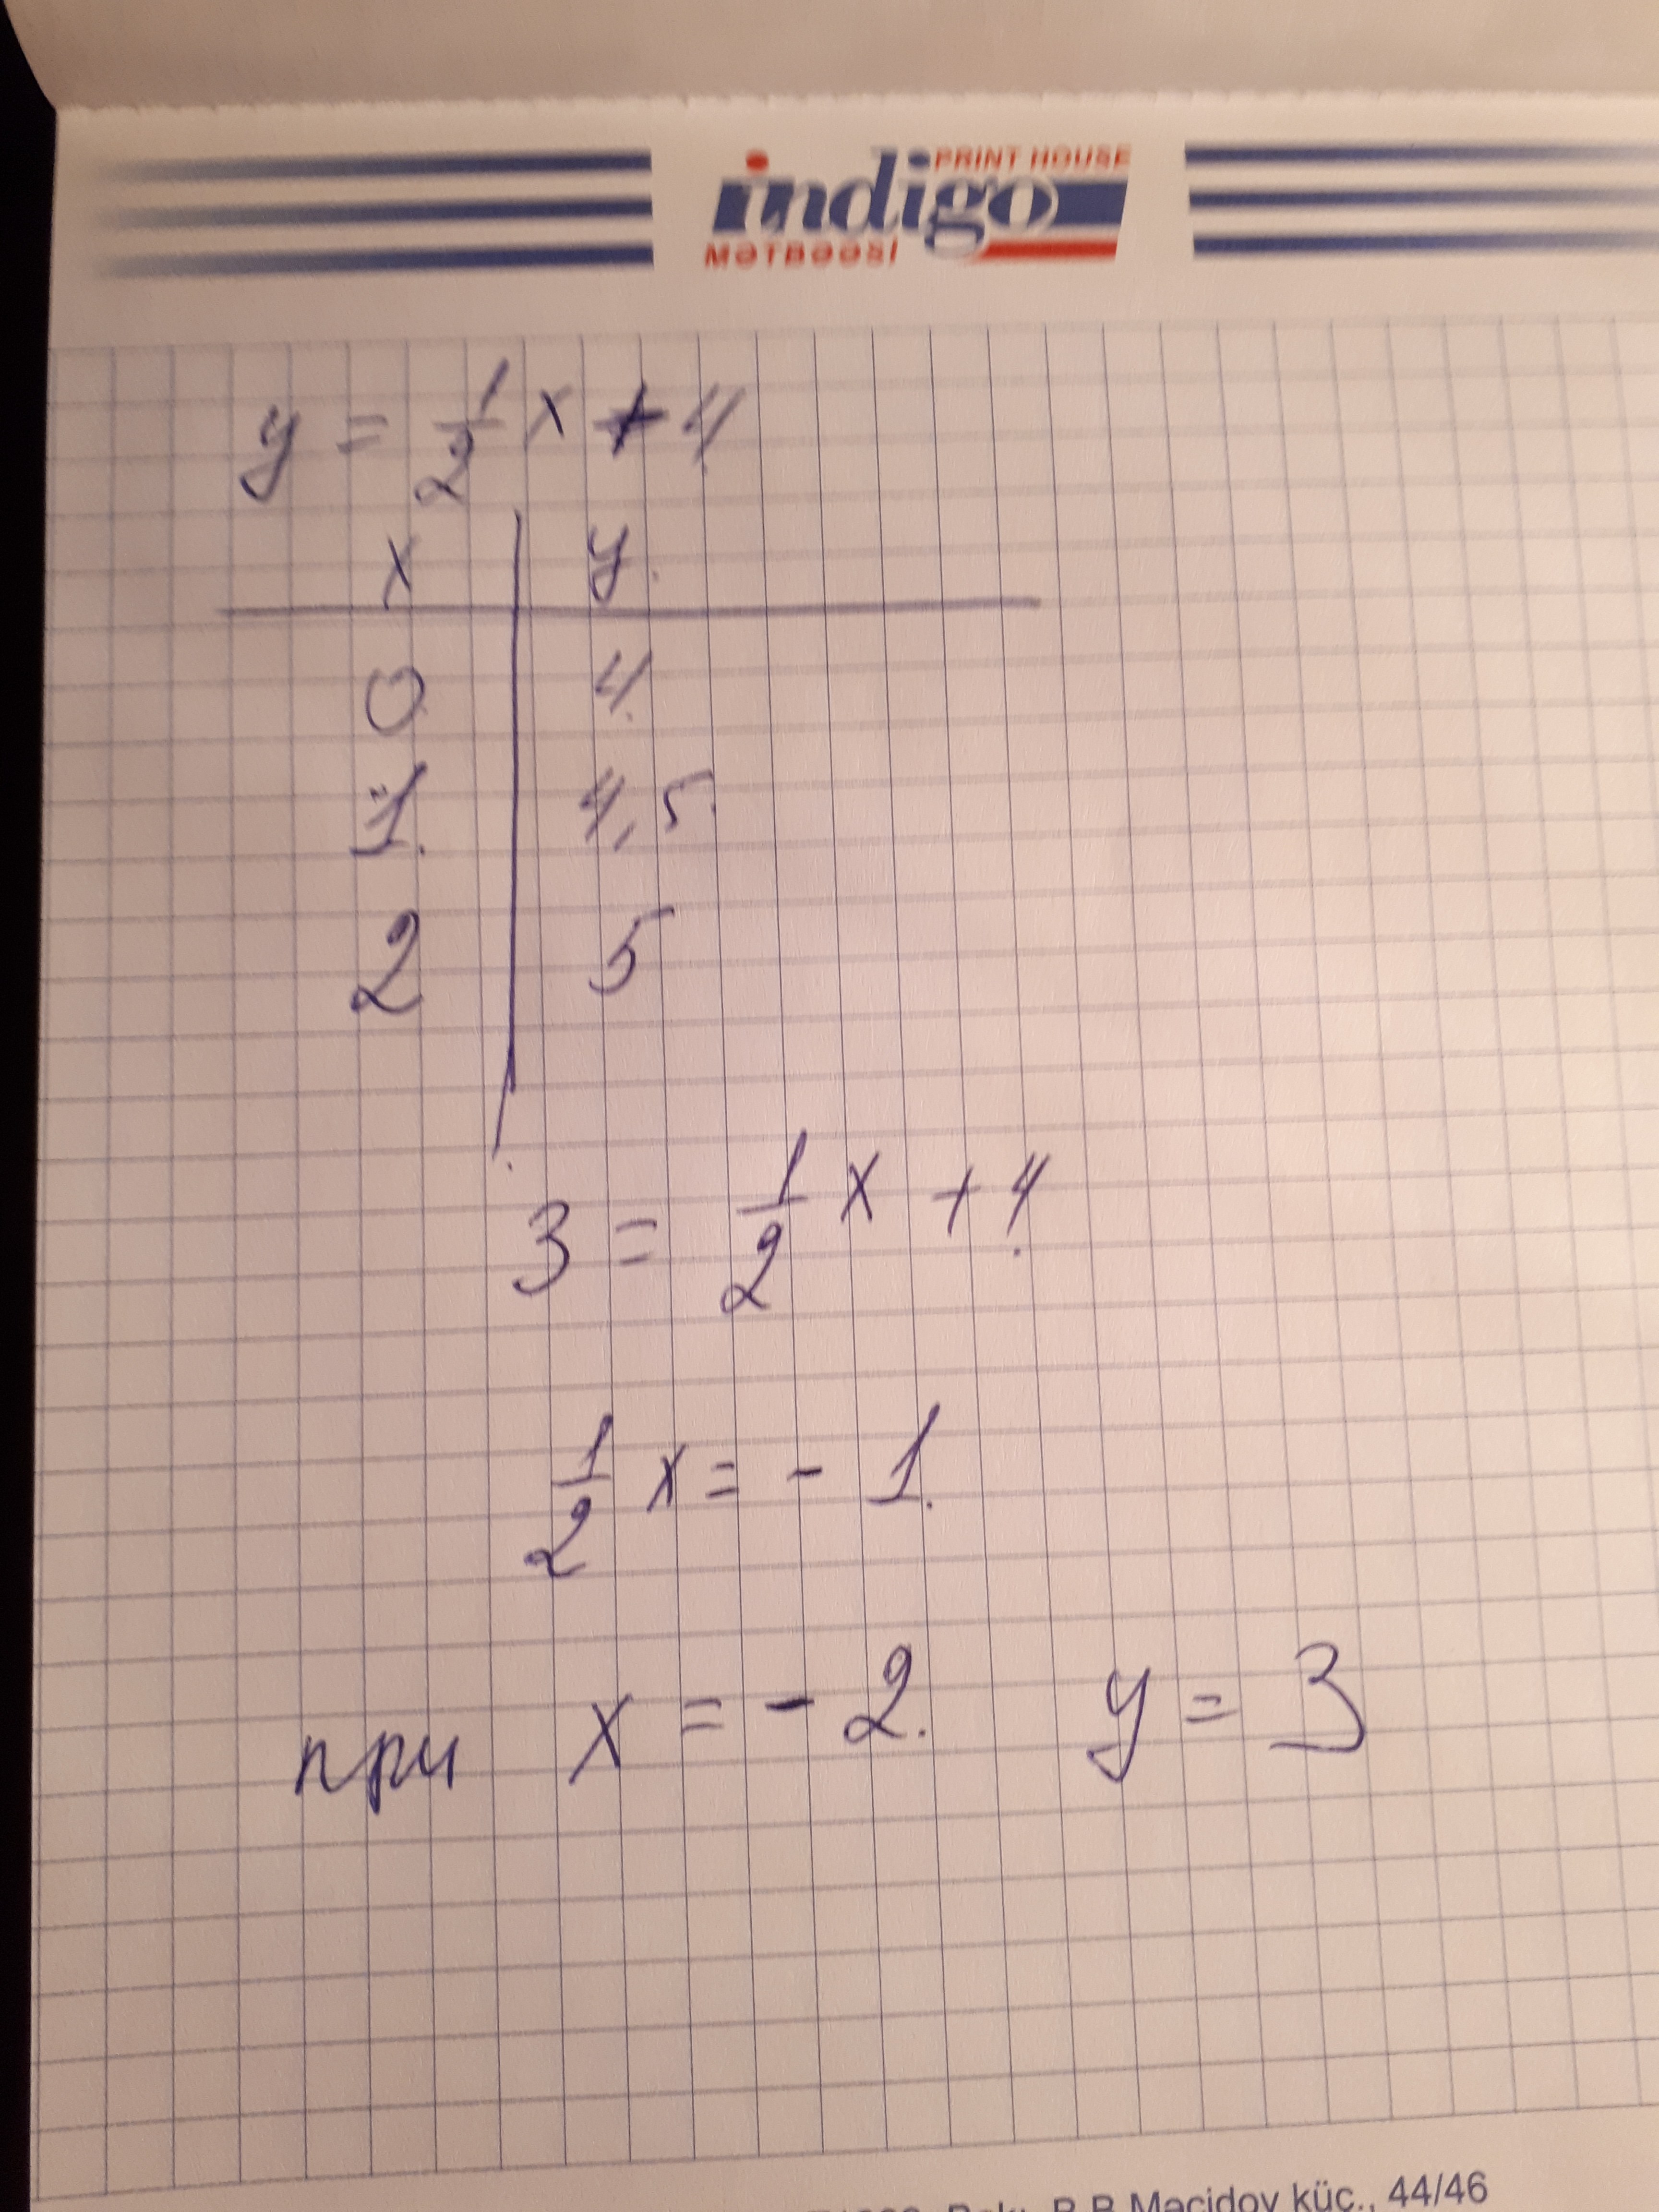 PRINT HOUSE
indigo
MƏTBƏƏSİ
y = 1/2 x + 4
x | y
0 | 4
1 | 4,5
2 | 5
3 = 1/2 x + 4
1/2 x = - 1
при x = - 2 y = 3
R.B.Məcidov küç., 44/46